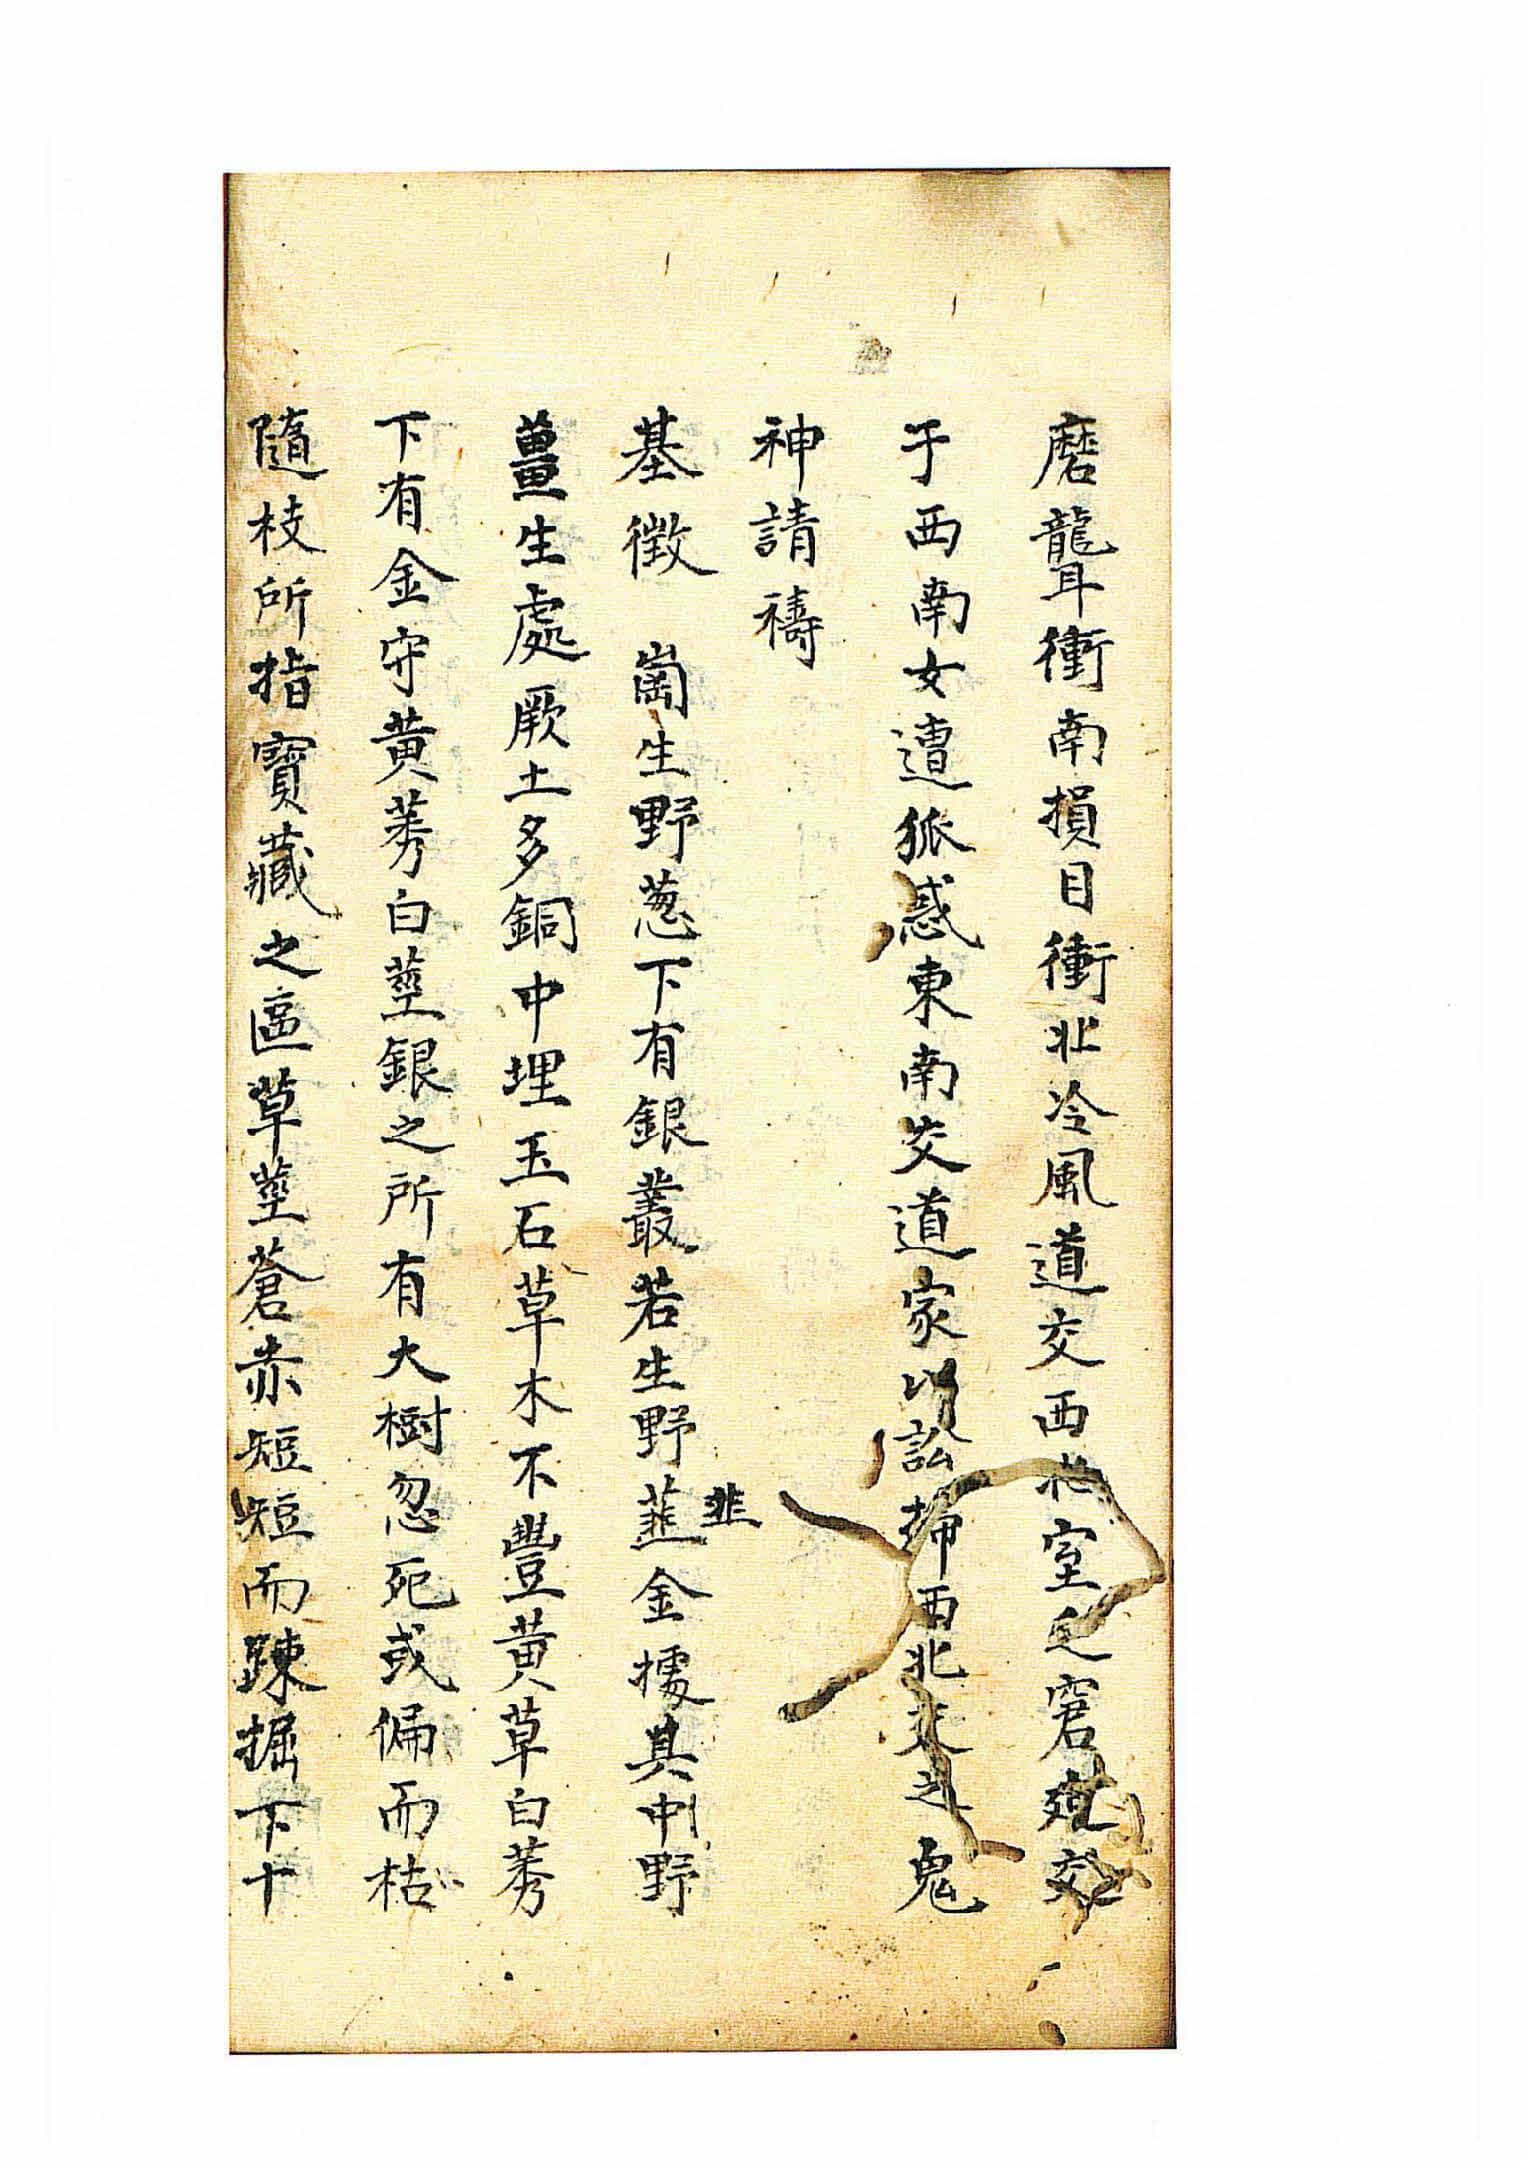 磨聾耳衝南損目衝北冷風道交西北室之窘交
于西南女遭狐惑東南交道家以訟掃西北交之鬼
神請禱
基徵 崗生野葱下有銀叢若生野薤韭金據其中野
薑生處厥土多銅中埋玉石草木不豐黄草白莠
下有金守黄莠白莖銀之所有大樹忽死或偏而枯
隨枝所指寶藏之區草莖蒼赤短短而踈掘下十